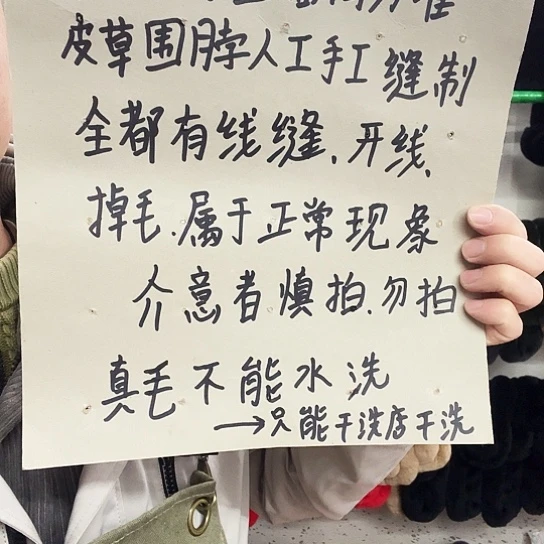 皮草围脖人工手工缝制
全都有线缝、开线、
掉毛.属于正常现象
介意者慎拍.勿拍
真毛不能水洗
→只能干洗店干洗